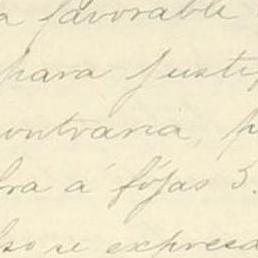 a favorable
para justif
ontraria, p
bra á fójas 3.
lso se expresa